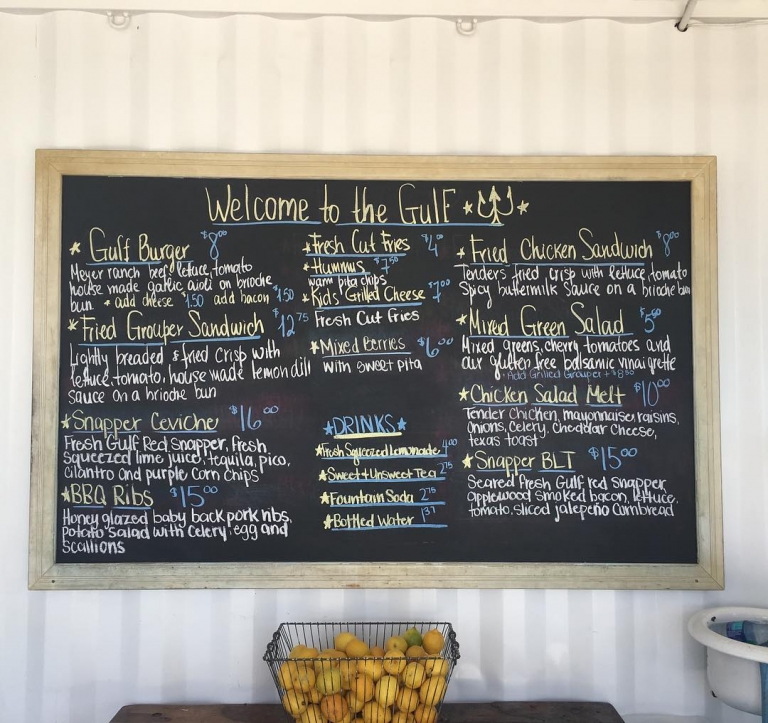 Welcome to the Gulf
Gulf Burger $8.00
Meyer ranch beef, lettuce, tomato
house made garlic aioli on brioche
bun. * add cheese $1.50 add bacon $1.50
Fried Grouper Sandwich $12.75
Lightly breaded & fried crisp with
lettuce, tomato, house made lemon dill
sauce on a brioche bun
Snapper Ceviche $16.00
Fresh Gulf Red snapper, fresh
squeezed lime juice, tequila, pico,
cilantro and purple corn chips
BBQ Ribs $15.00
Honey glazed baby back pork ribs,
potato salad with celery, egg and
scallions
Fresh Cut Fries $4.00
Hummus $7.50
warm pita chips
Kids' Grilled Cheese $7.00
Fresh Cut Fries
Mixed Berries $6.00
with sweet pita
DRINKS
Fresh Squeezed Lemonade 4.00
Sweet + Unsweet Tea 2.75
Fountain Soda 2.75
Bottled Water 1.37
Fried Chicken Sandwich $8.00
Tenders fried crisp with lettuce, tomato
Spicy buttermilk sauce on a brioche bun
Mixed Green Salad $5.50
Mixed greens, cherry tomatoes and
our gluten free balsamic vinaigrette
* Add Grilled Grouper + $8.50
Chicken Salad Melt $10.00
Tender chicken, mayonnaise, raisins,
onions, celery, cheddar cheese,
texas toast
Snapper BLT $15.00
Seared Fresh Gulf red snapper
applewood smoked bacon, lettuce,
tomato, sliced jalepeño cornbread